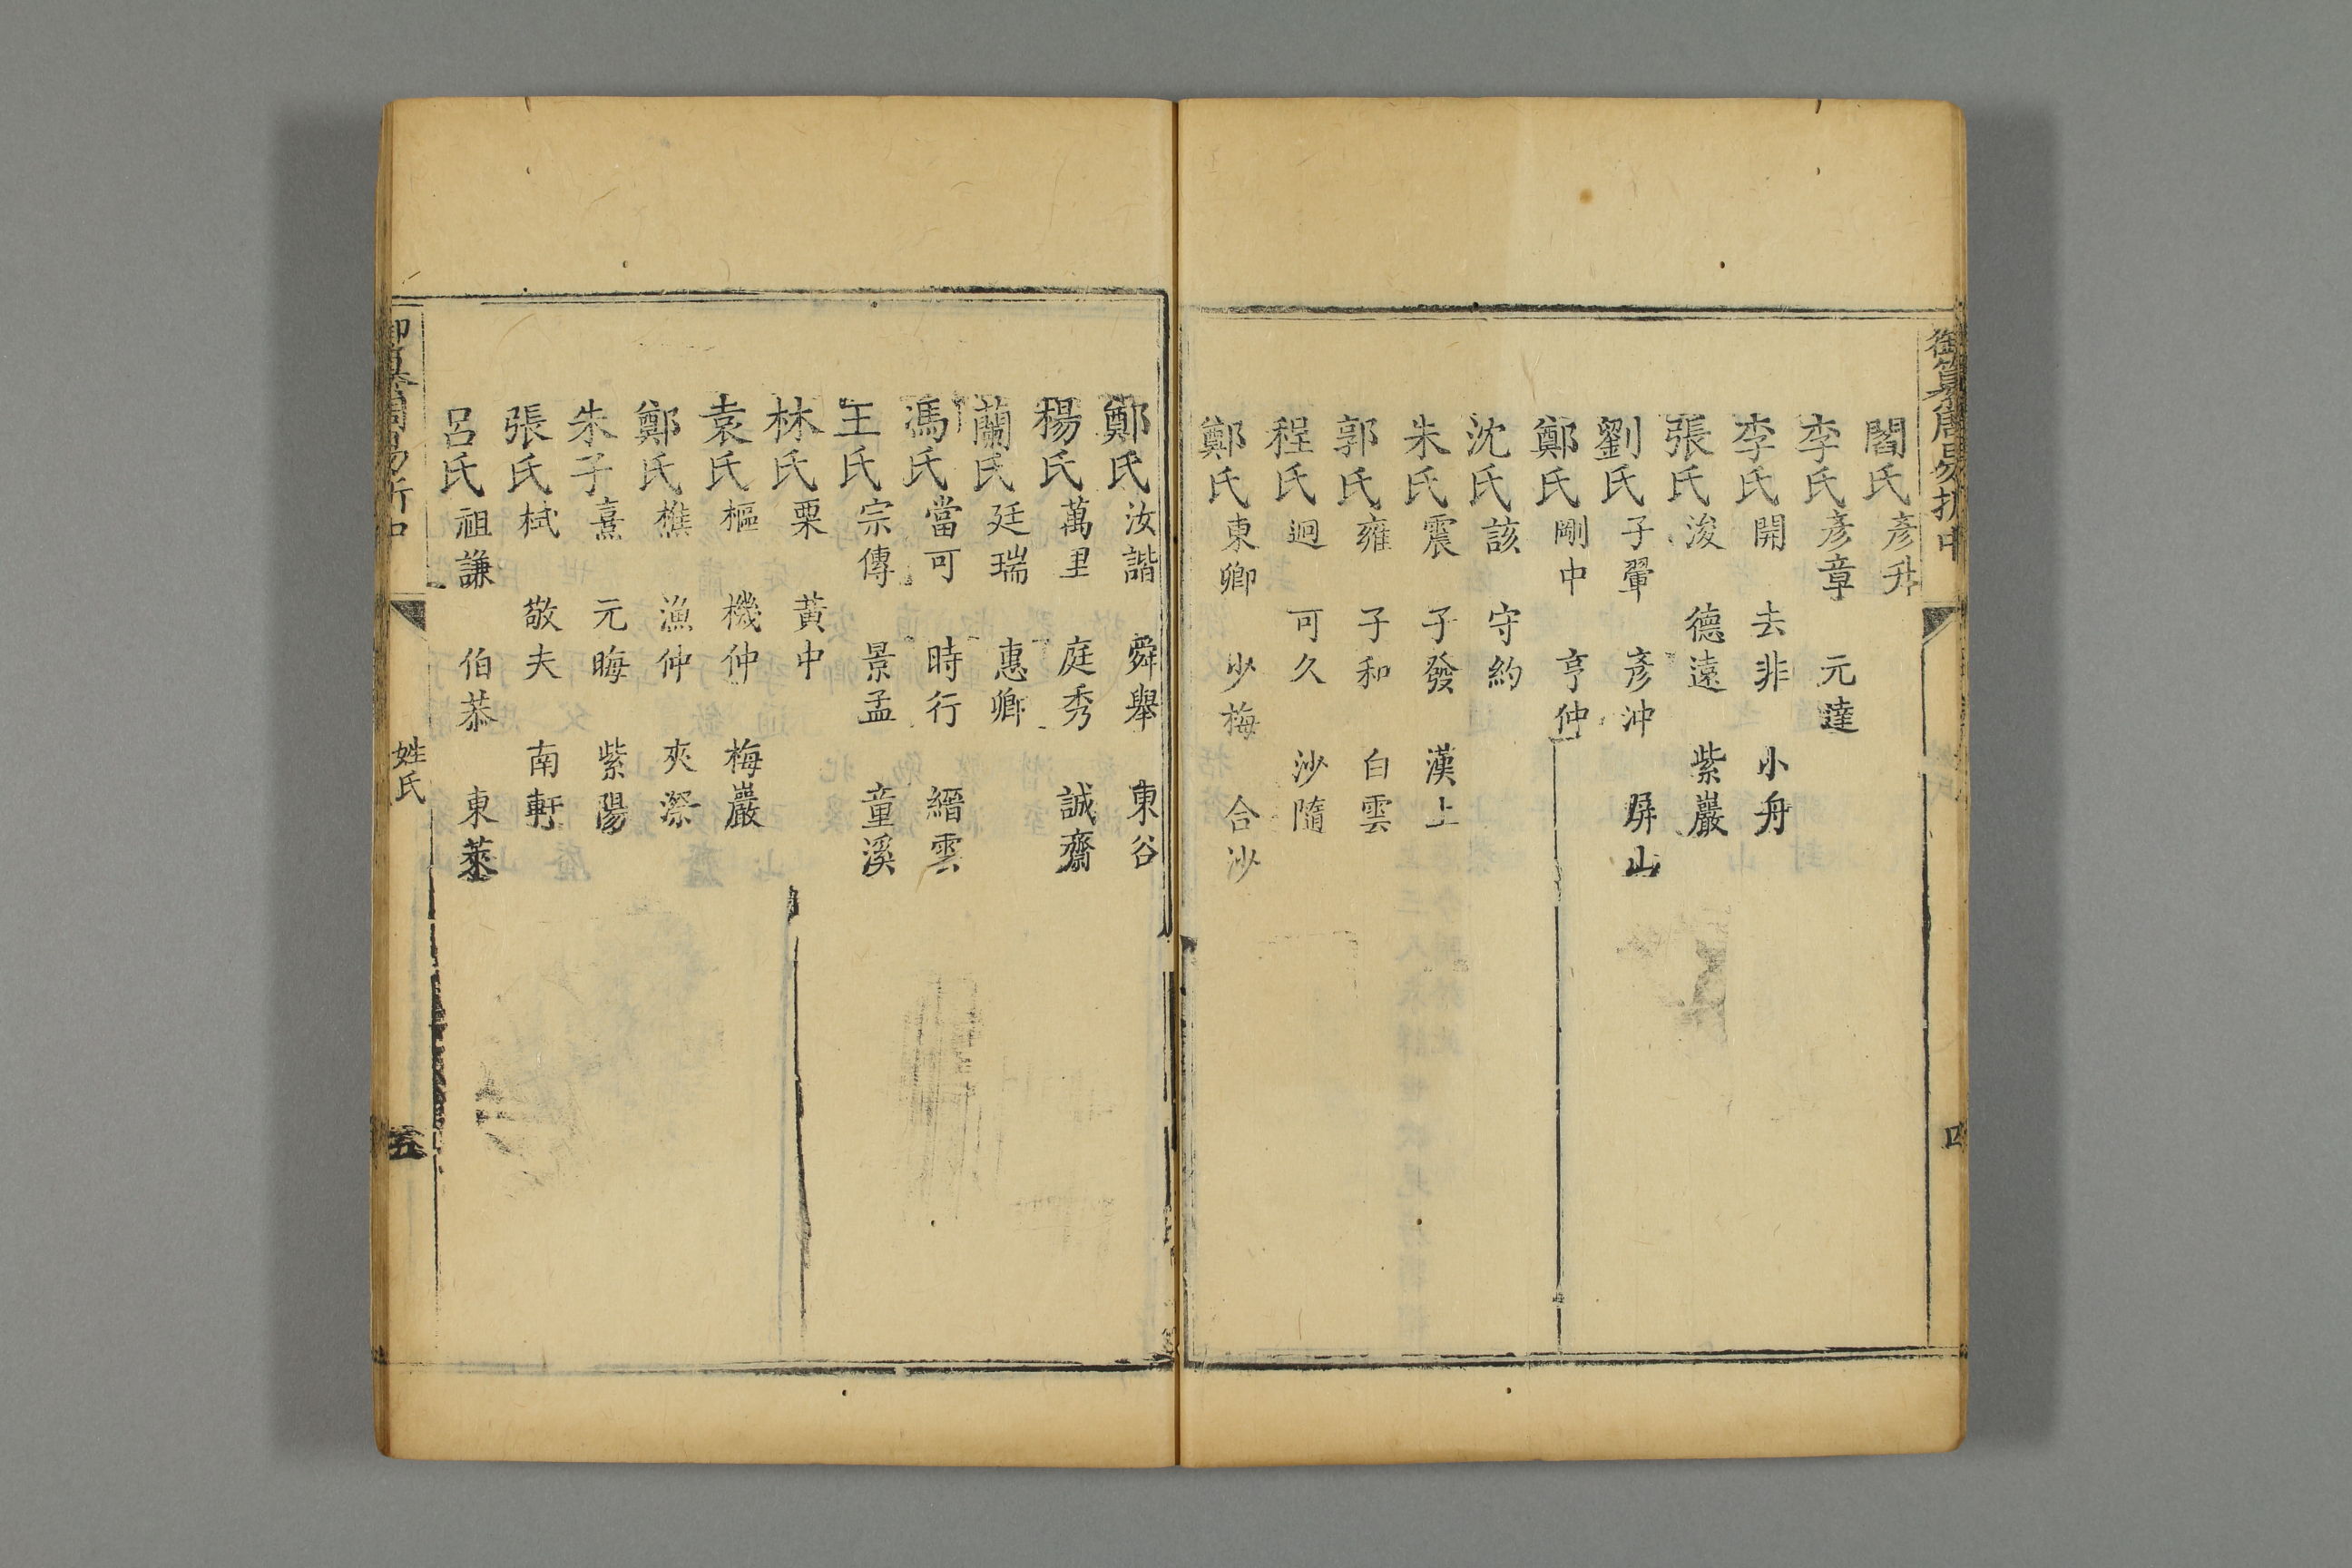 御纂周易折中
四
閻氏彥升
李氏彥章 元達
李氏開 去非 小舟
張氏浚 德遠 紫巖
劉氏子翬 彥沖 屏山
鄭氏剛中 亨仲
沈氏該 守約
朱氏震 子發 漢上
郭氏雍 子和 白雲
程氏迥 可久 沙隨
鄭氏東卿 少梅 合沙
鄭氏汝諧 舜舉 東谷
楊氏萬里 庭秀 誠齋
蘭氏廷瑞 惠卿
馮氏當可 時行 縉雲
王氏宗傳 景孟 童溪
林氏栗 黃中
袁氏樞 機仲 梅巖
鄭氏樵 漁仲 夾漈
朱子熹 元晦 紫陽
張氏栻 敬夫 南軒
呂氏祖謙 伯恭 東萊
御纂周易折中
姓氏
五